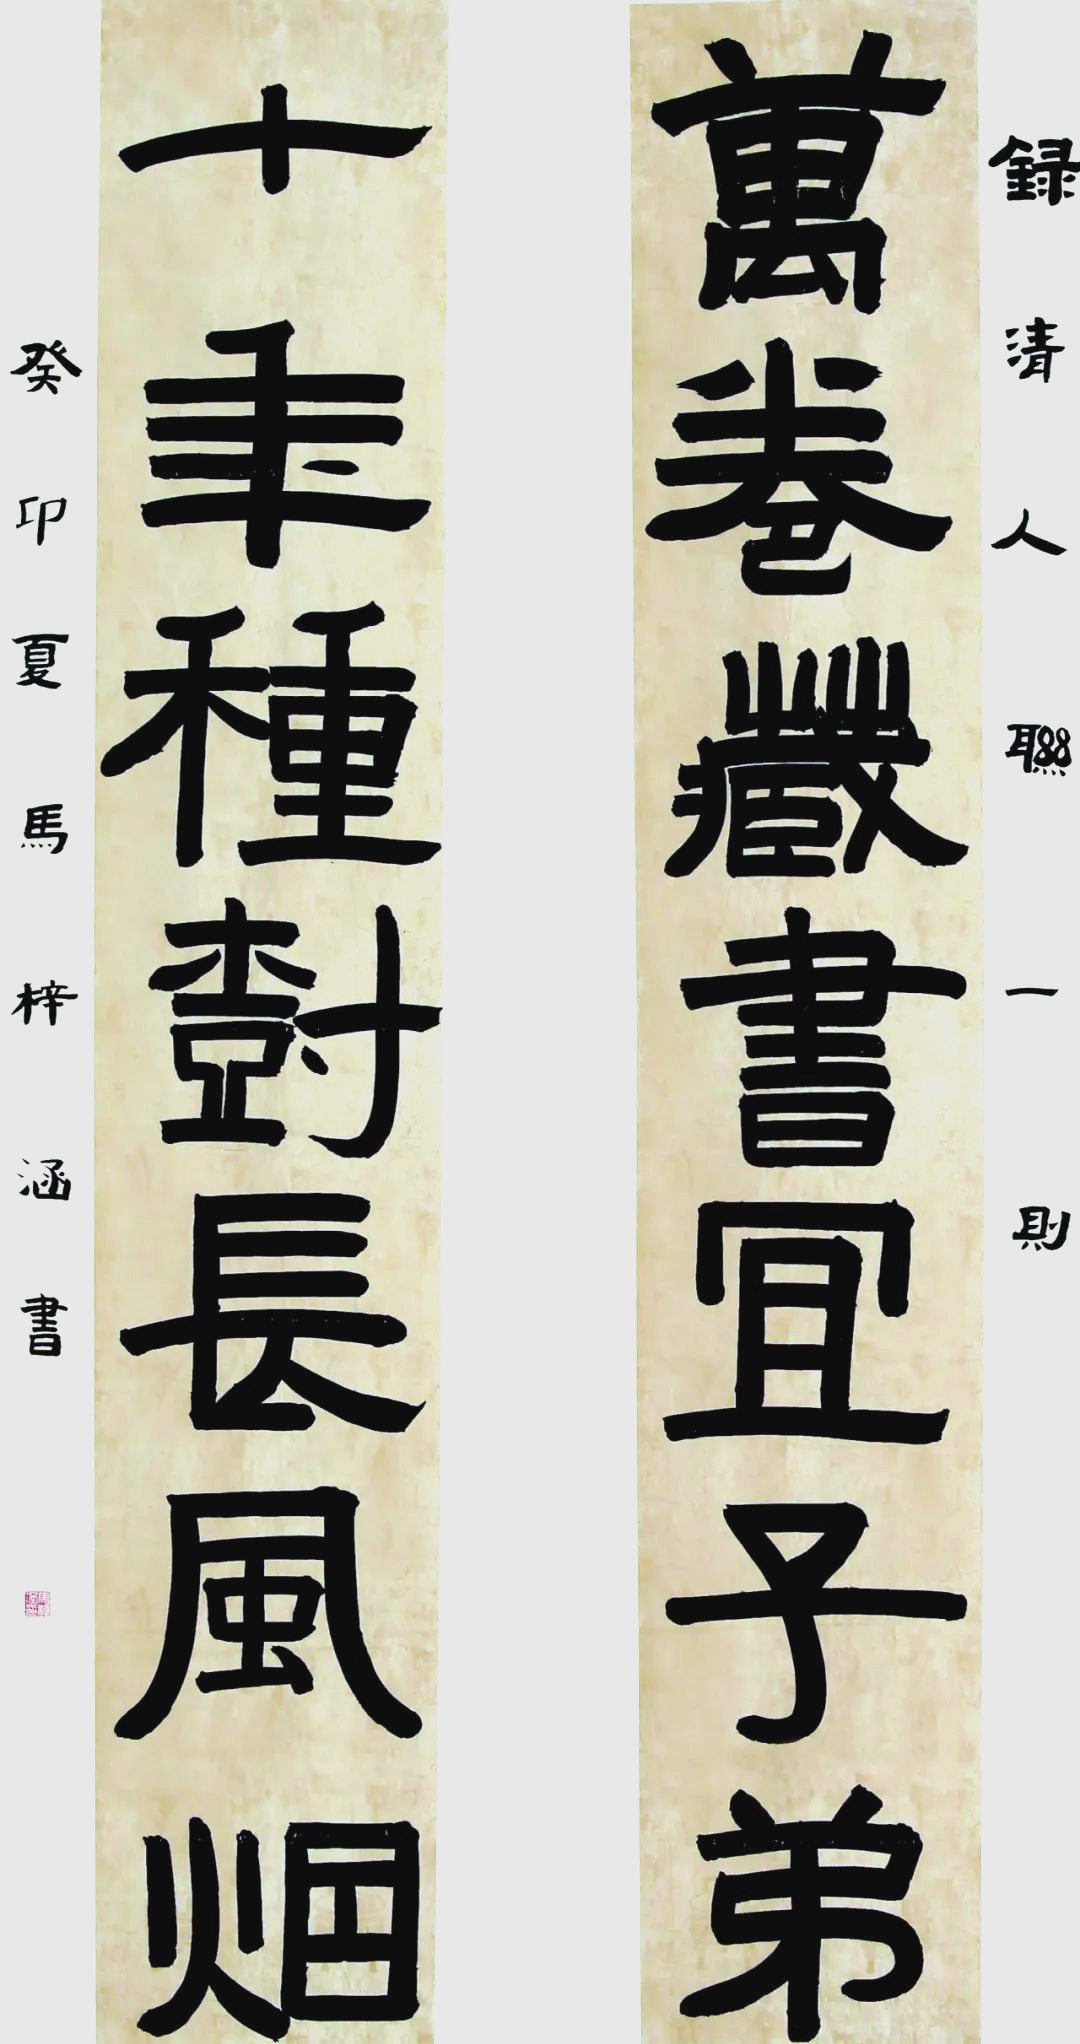 録清人聯一則
萬卷藏書宜子弟
十年種樹長風烟
癸卯夏馬梓涵書